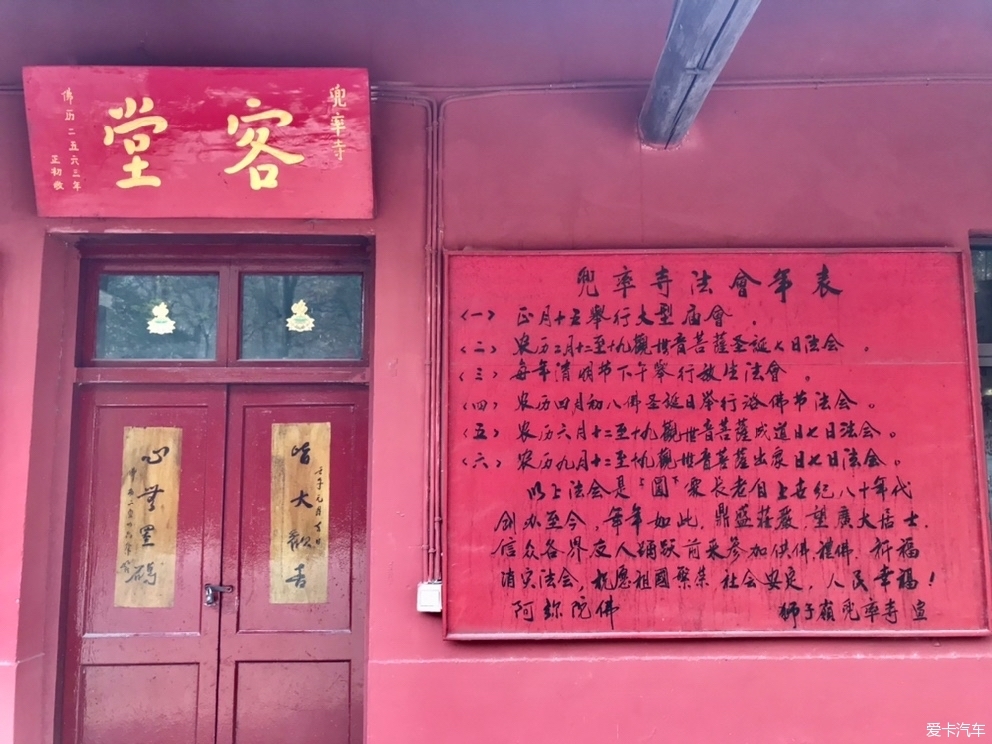 兜率寺
客堂
佛历二五六三年
正初敬
皆大歡喜
心無罣碍
兜率寺法會年表
（一） 正月十五舉行大型庙會。
（二） 农历二月十二至十九觀世音菩薩圣誕七日法会。
（三） 每年清明节下午舉行放生法會。
（四） 农历四月初八佛圣誕日举行浴佛节法会。
（五） 农历六月十二至十九觀世音菩薩成道日七日法会。
（六） 农历九月十二至十九觀世音菩薩出家日七日法会。
以上法会是上圆下霖長老自上世纪八十年代
创办至今，每年如此，鼎盛莊嚴，望廣大居士，
信众各界友人踊跃前来参加供佛，禮佛，祈福
消灾法会，祝愿祖國繁荣，社会安定，人民幸福！
阿弥陀佛
獅子嶺兜率寺 宣
爱卡汽车